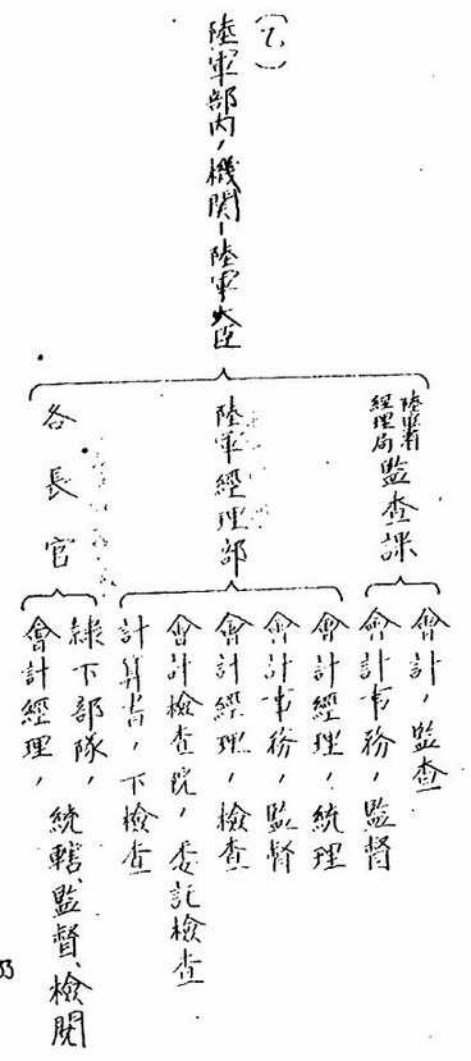 (乙)
陸軍部内ノ機関ー陸軍大臣
陸軍省
経理局
監査課
會計ノ監査
會計事務ノ監督
陸軍經理部
會計經理ノ統理
會計事務ノ監督
會計經理ノ檢査
會計檢査院ノ委託檢査
計算書ノ下檢査
各長官
隷下部隊ノ統轄、監督、檢閲
會計經理ノ
33